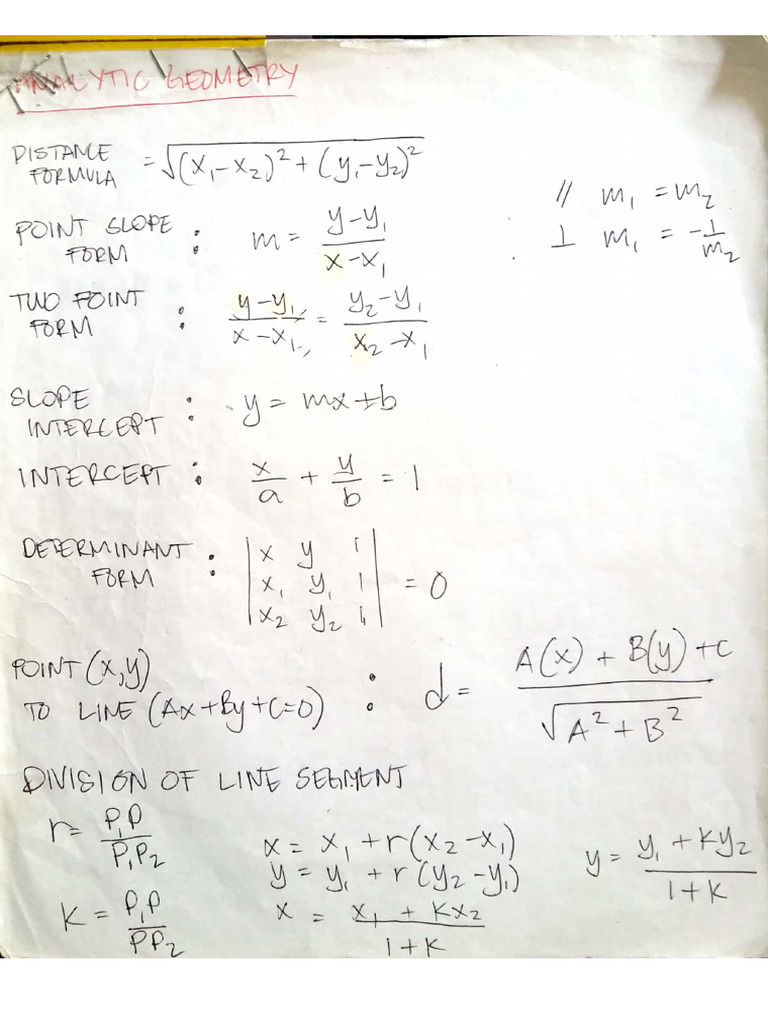 ANALYTIC GEOMETRY
DISTANCE FORMULA = √(x₁-x₂)² + (y₁-y₂)²
// m₁ = m₂
⊥ m₁ = -1/m₂
POINT SLOPE FORM : m = y-y₁ / x-x₁
TWO POINT FORM : y-y₁ / x-x₁ = y₂-y₁ / x₂-x₁
SLOPE INTERCEPT : y = mx+b
INTERCEPT : x/a + y/b = 1
DETERMINANT FORM : | x y 1 |
| x₁ y₁ 1 | = 0
| x₂ y₂ 1 |
POINT (x,y)
TO LINE (Ax+By+C=0) : d = A(x) + B(y) + C / √A² + B²
DIVISION OF LINE SEGMENT
r = P₁P / P₁P₂
x = x₁ + r(x₂-x₁)
y = y₁ + r(y₂-y₁)
y = y₁ + ky₂ / 1+k
k = P₁P / PP₂
x = x₁ + kx₂ / 1+k